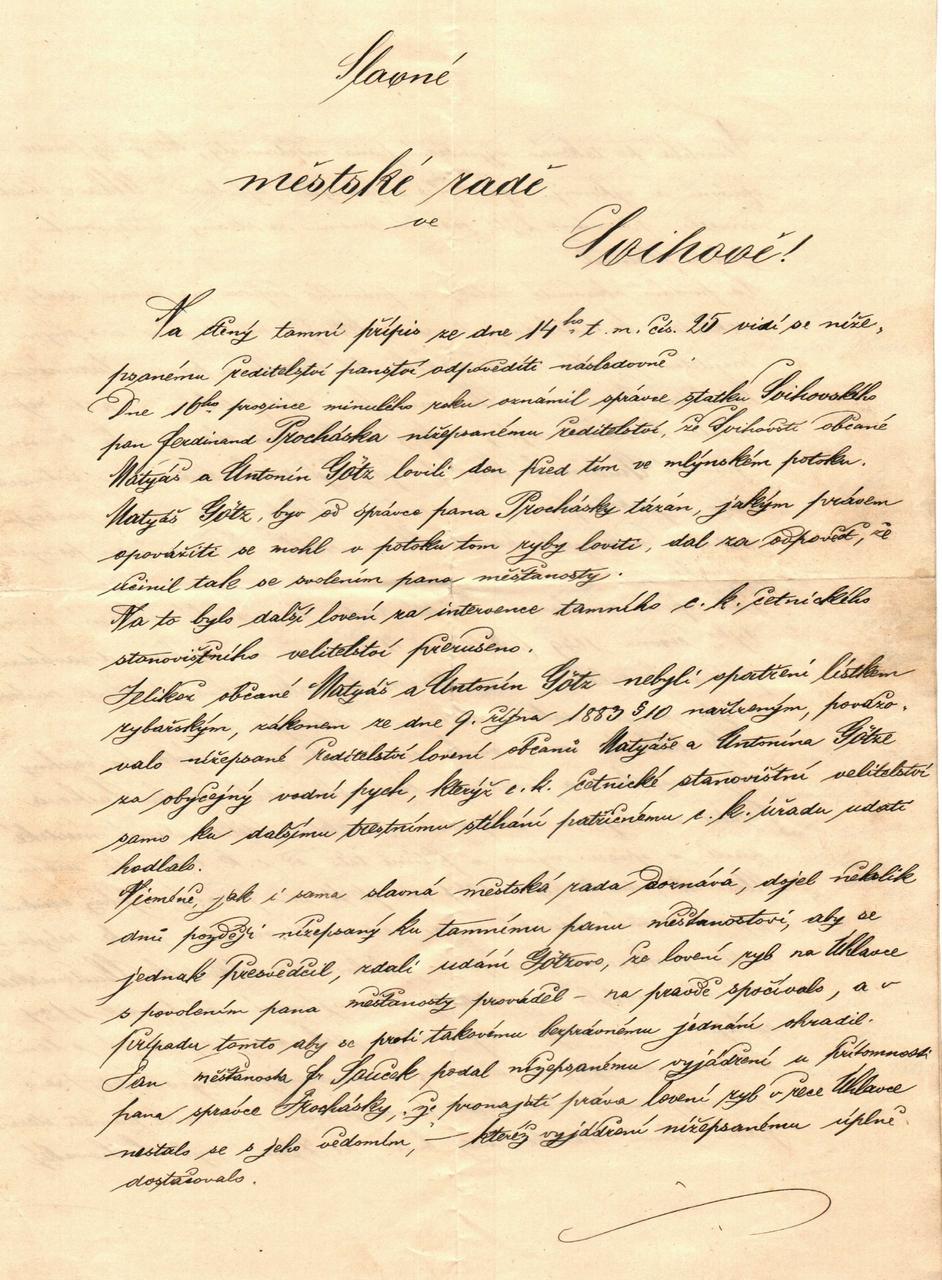 Slavné
městské radě
ve
Svihově!
Na ctený tamní přípis ze dne 14ho t. m. čís. 25 vidí se níže-
psanému ředitelství panství odpověditi následovně:
Dne 16ho prosince minulého roku oznámil správce statku Svihovského
pan Ferdinand Procháska nížepsanému ředitelství, že Svihovští občané
Matyáš a Antonín Götz lovili den před tím ve mlýnském potoku.
Matyáš Götz, byv od správce pana Prochásky tázán, jakým právem
opovážiti se mohl v potoku tom ryby loviti, dal za odpověď, že
učinil tak se svolením pana měšťanosty.
Na to bylo další lovení za intervence tamního c. k. četnického
stanovištního velitelství přerušeno.
Jelikož občané Matyáš a Antonín Götz nebyli opatřeni lístkem
rybářským, zákonem ze dne 9. října 1883 § 10 nařízeným, považo-
valo nížepsané ředitelství lovení občanů Matyáše a Antonína Götze
za obyčejný vodní pych, kterýž c. k. četnické stanovištní velitelství
samo ku dalšímu trestnímu stíhání patřičnému c. k. úřadu udati
hodlalo.
Nicméně, jak i sama slavná městská rada doznává, dojel několik
dnů později nížepsaný ku tamnímu panu měšťanostovi, aby se
jednak přesvědčil, zdali udání Götzovo, že lovení ryb na Uhlavce
s povolením pana měšťanosty prováděl – na pravdě spočívalo, a v
případu tomto aby se proti takovému bezprávnému jednání ohradil.
Pan měšťanosta Fr. Souček podal nížepsanému vyjádření u přítomnosti
pana správce Prochásky, že pronajutí práva lovení ryb v řece Uhlavce
nestalo se s jeho vědomím, – kteréž vyjádření nížepsanému úplně
dostačovalo.